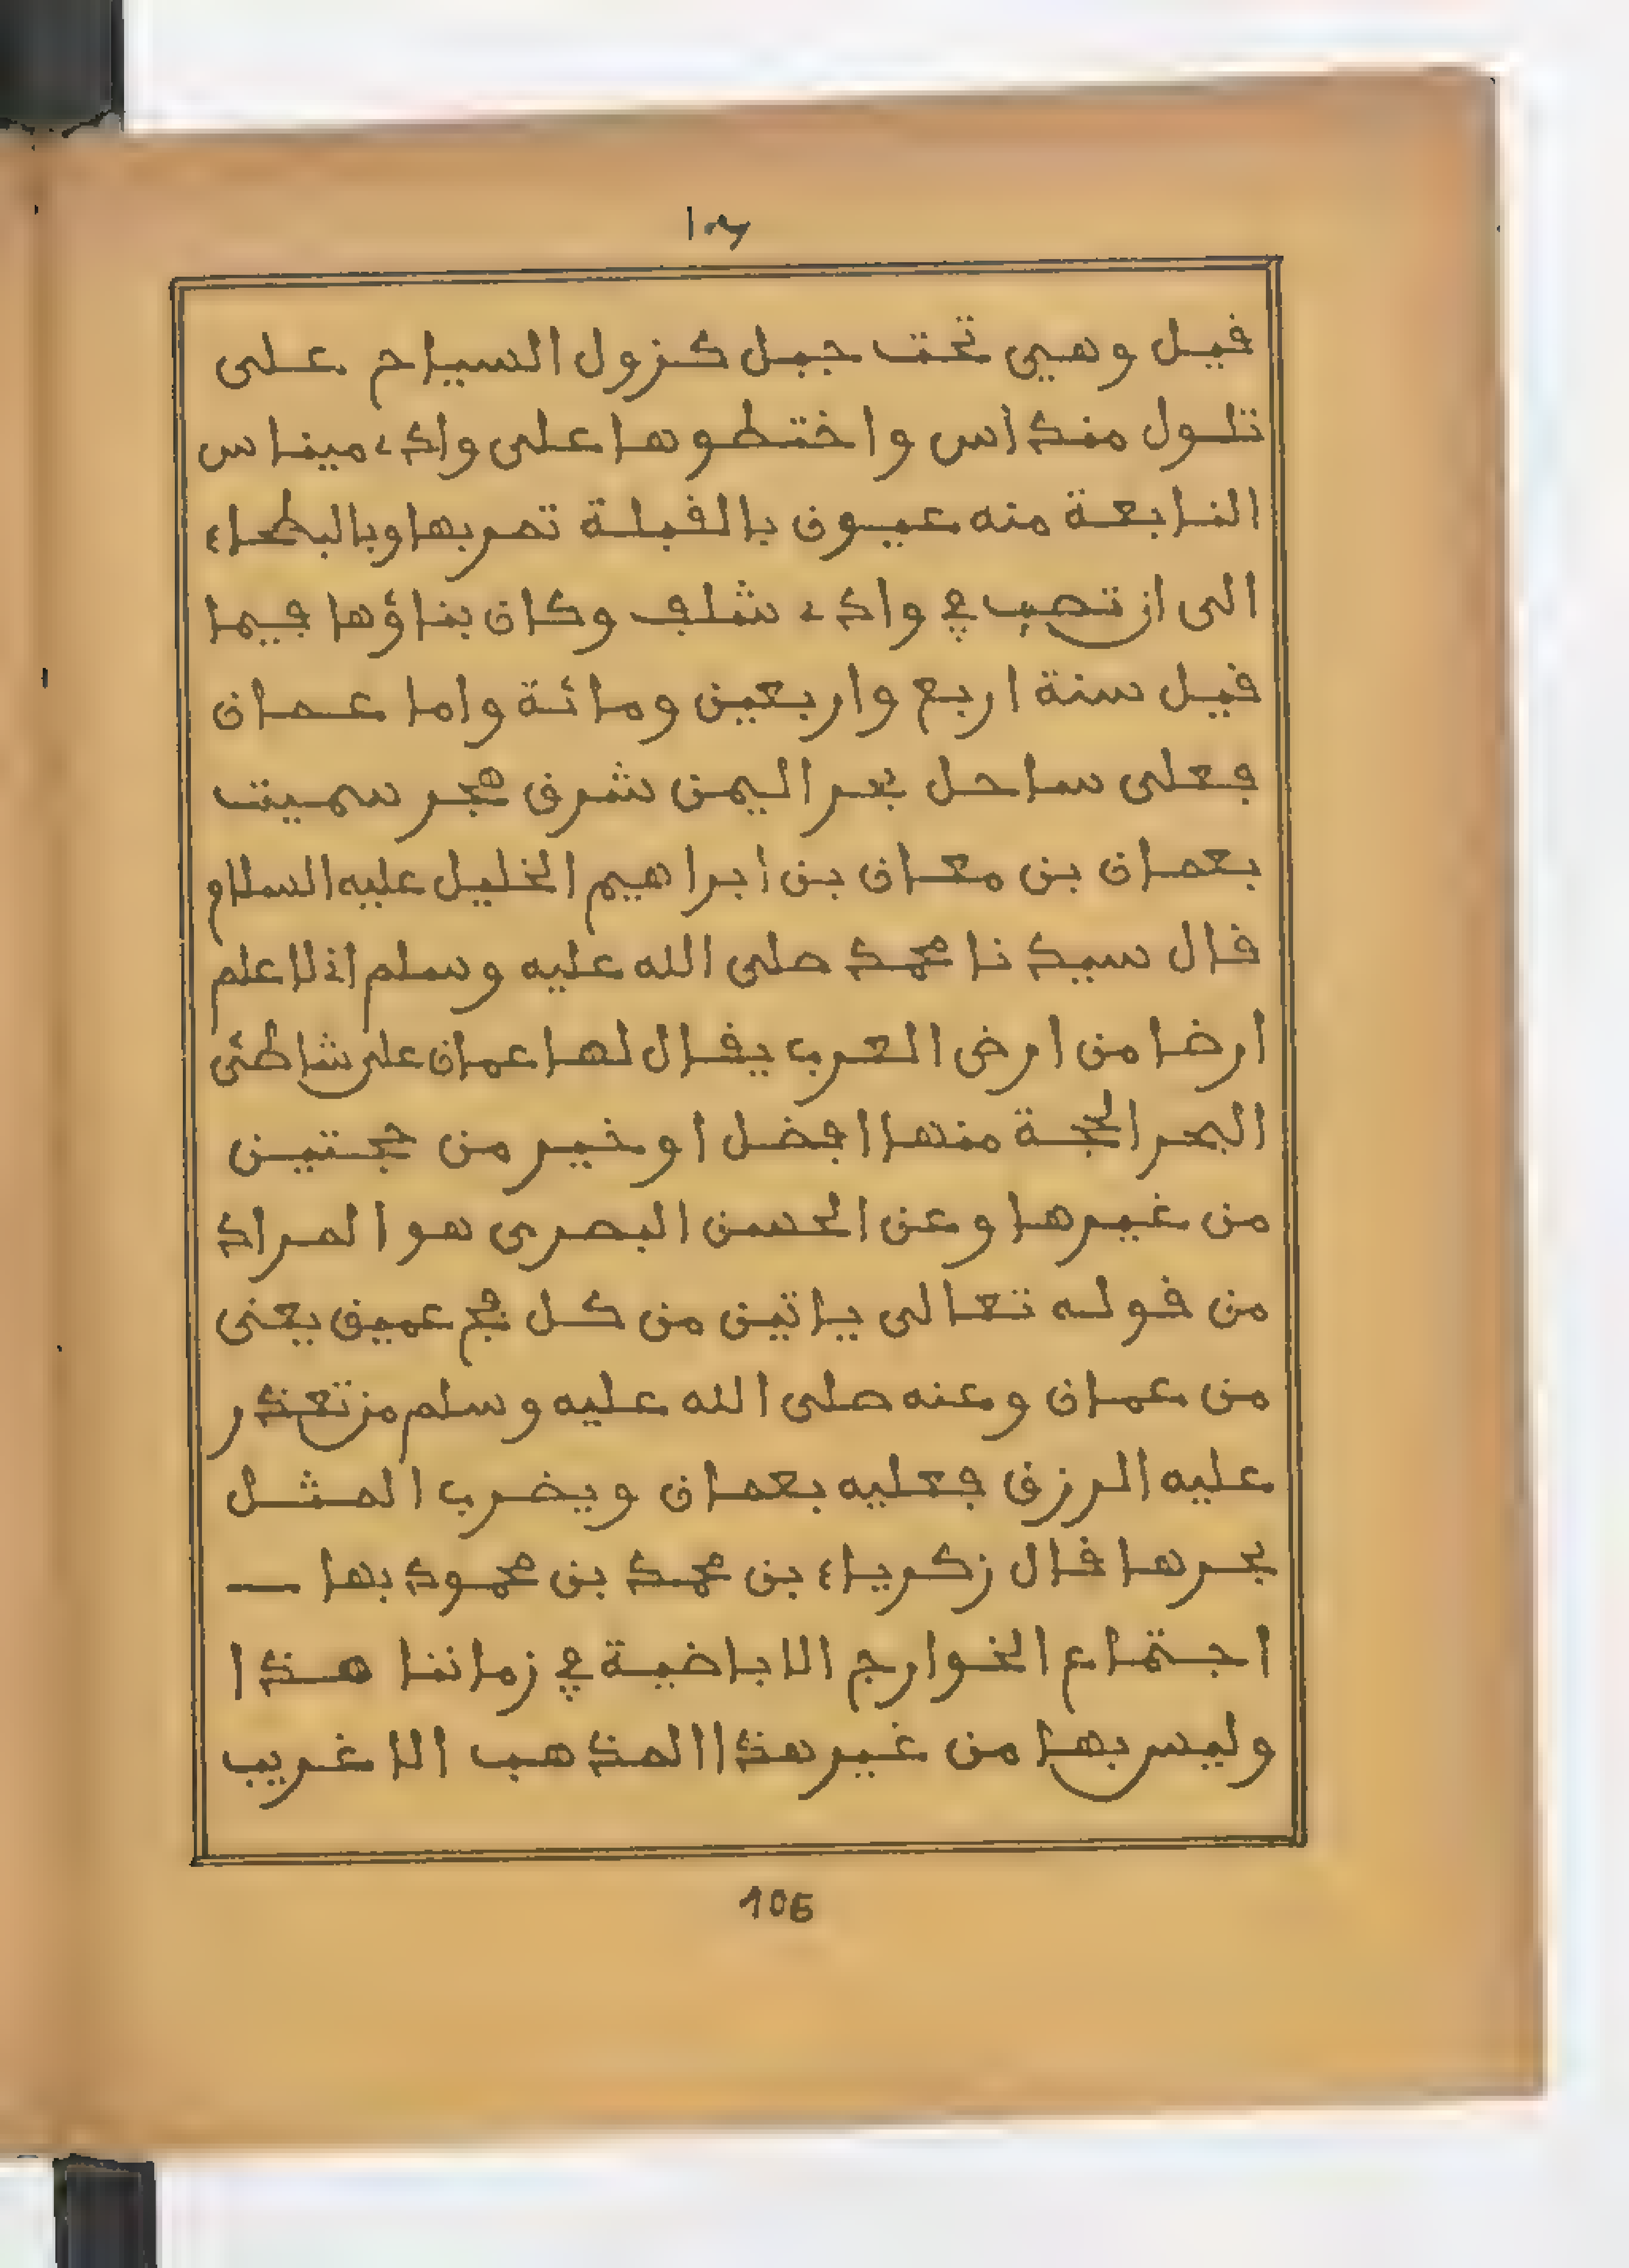 ١٠٦
قيل وهي تحت جبل كزول السياح على
تلول منداس واختطوها على وادء ميناس
النابعة منه عيون بالقبلة تمر بها وبالبطحاء
الى ان تصب في وادء شلف وكان بناؤها فيما
قيل سنة اربع واربعين ومائة واما عمان
فعلى ساحل بحر اليمن شرق هجر سميت
بعمان بن معان بن ابراهيم الخليل عليه السلام
قال سيدنا محمد صلى الله عليه وسلم اني لاعلم
ارضا من ارض العرب يقال لها عمان على شاطئى
البحر الحجة منها افضل او خير من حجتين
من غيرها وعن الحسن البصري هو المراد
من قوله تعالى ياتين من كل فج عميق يعنى
من عمان وعنه صلى الله عليه وسلم من تعذر
عليه الرزق فعليه بعمان ويضرب المثل
بحرها قال زكرياء بن محمد بن محمود بها —
اجتماع الخوارج الاباضية في زماننا هذا
وليس بها من غير هذا المذهب الا غريب
106